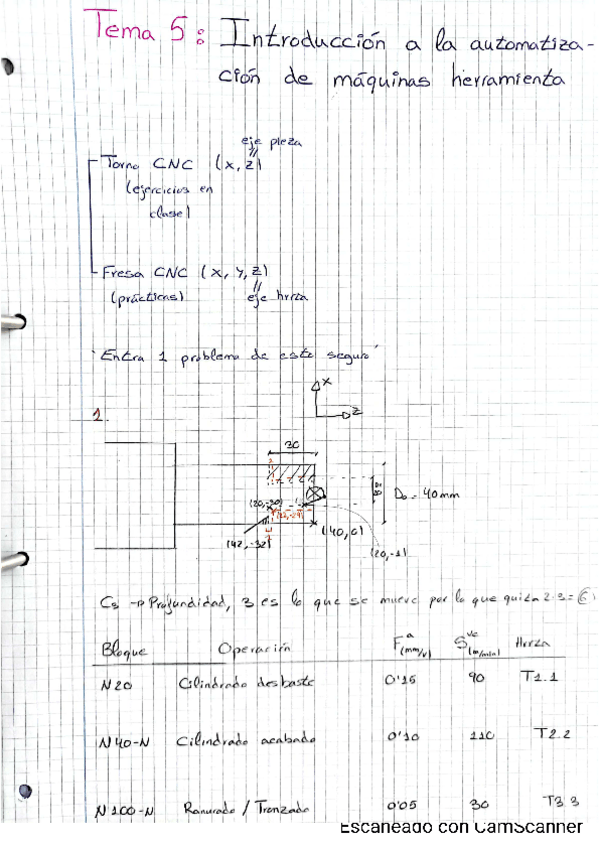 Tema 5: Introducción a la automatiza-
ción de máquinas herramienta
eje pieza
Torno CNC (x, z)
(ejercicios en
clase)
Fresa CNC (x, y, z)
(prácticas) eje hrrza
"Entra 1 problema de este seguro"
x
z
1.
30
D₀ = 40mm
(20,-30)
(40,0)
(42,-32)
(20,-1)
C₃ → Profundidad, 3 es lo que se mueve por lo que quita 2·3=6
a vc
Bloque Operación F(mm/v) S(m/min) Hrrza
N20 Cilindrado desbaste 0'15 90 T1.1
N40-N Cilindrado acabado 0'10 110 T2.2
N100-N Ranurado / Tronzado 0'05 30 T3 3
Escaneado con CamScanner